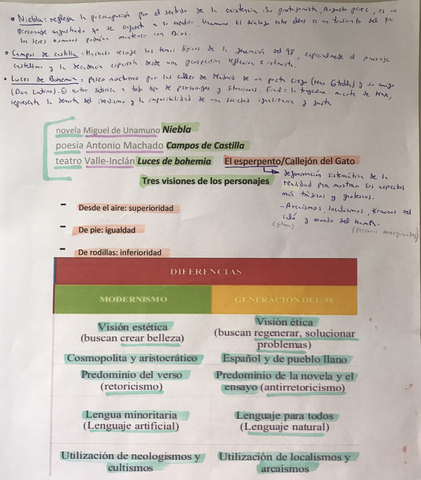 • Niebla: refleja la preocupación por el sentido de la existencia. Su protagonista, Augusto Pérez, es un
personaje angustiado que se enfrenta a su creador Unamuno. El diálogo entre ellos es un
los seres humanos podrían mantener con Dios.
• Campos de Castilla: Machado recoge los temas típicos de la generación del 98, el paisaje
castellano y la decadencia española desde una perspectiva reflexiva e intimista.
• Luces de Bohemia: Paseo nocturno por las calles de Madrid de un poeta ciego (Max Estrella) y su amigo
(Don Latino). El autor satiriza a todo tipo de personajes y situaciones. Final: la trágica muerte de Max,
representa la derrota del idealismo y la imposibilidad de una sociedad igualitaria y justa
novela Miguel de Unamuno Niebla
poesia Antonio Machado Campos de Castilla
teatro Valle-Inclán Luces de bohemia El esperpento/Callejón del Gato
Tres visiones de los personajes
deformación sistemática de la
realidad para mostrar sus aspectos
más trágicos y grotescos.
- Arcaísmos, localismos, términos del
caló y mundo del hampa.
- Desde el aire: superioridad
- De pie: igualdad
- De rodillas: inferioridad
DIFERENCIAS
MODERNISMO GENERACIÓN DEL 98
Visión estética Visión ética
(buscan crear belleza) (buscan regenerar, solucionar
problemas)
Cosmopolita y aristocrático Español y de pueblo llano
Predominio del verso Predominio de la novela y el
(retoricismo) ensayo (antirretoricismo)
Lengua minoritaria Lenguaje para todos
(Lenguaje artificial) (Lenguaje natural)
Utilización de neologismos y Utilización de localismos y
cultismos arcaísmos